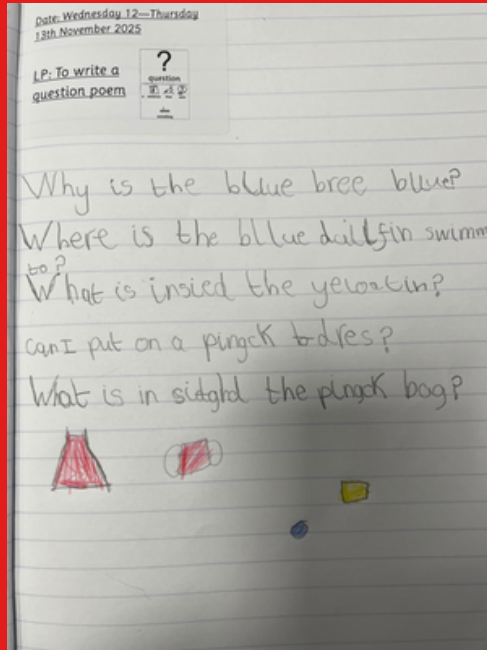 Date: Wednesday 12—Thursday
13th November 2025
LP: To write a
question poem
?
question
Why is the bluue bree bluue?
Where is the bllue dallfin swimm
to?
What is insied the yeloatin?
can I put on a pingck dres?
What is in sidghd the pingck bag?